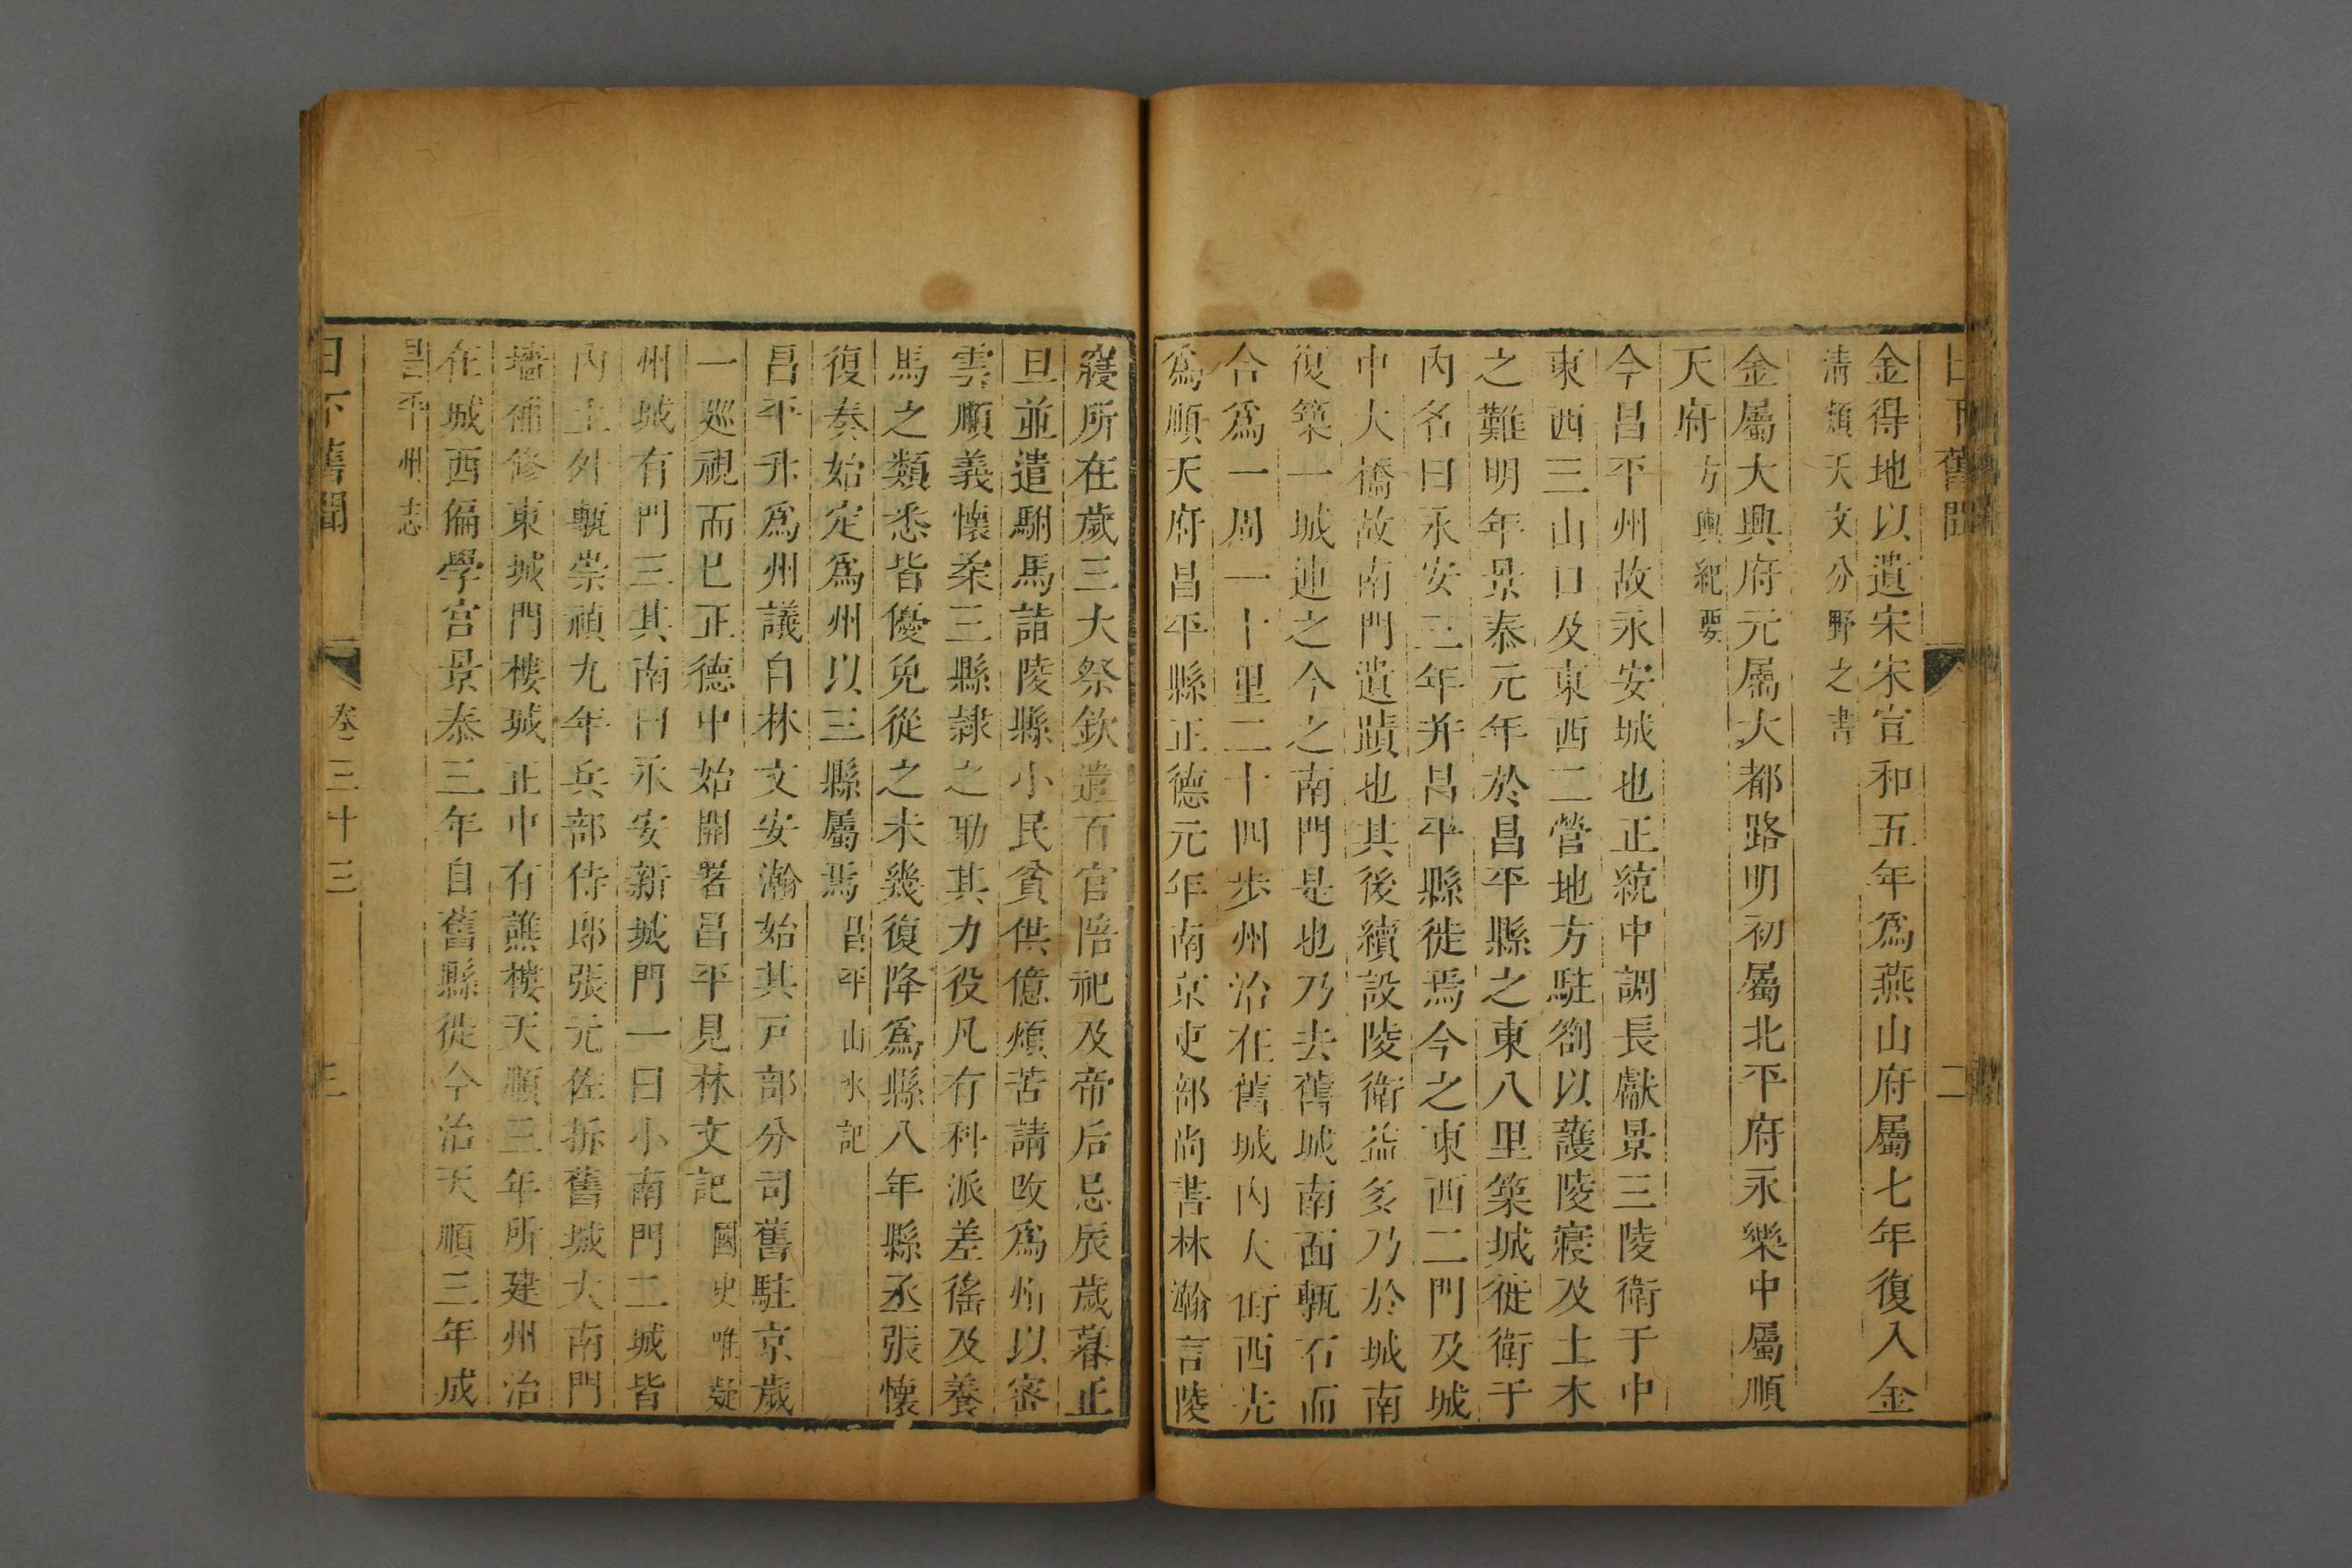 日下舊聞
二
金得地以遺宋宋宣和五年爲燕山府屬七年復入金
清類天文分野之書
金屬大興府元屬大都路明初屬北平府永樂中屬順
天府方輿紀要
今昌平州故永安城也正統中調長獻景三陵衛于中
東西三山口及東西二營地方駐劄以護陵寢及土木
之難明年景泰元年於昌平縣之東八里築城徙衛于
內名曰永安三年并昌平縣徙焉今之東西二門及城
中大橋故南門遺蹟也其後續設陵衛益多乃於城南
復築一城連之今之南門是也乃去舊城南面甎石而
合爲一周一十里二十四步州治在舊城內大街西先
爲順天府昌平縣正德元年南京吏部尚書林瀚言陵
寢所在歲三大祭欽遣百官陪祀及帝后忌辰歲暮正
旦並遣駙馬詣陵縣小民貧供億煩苦請改爲州以密
雲順義懷柔三縣隷之助其力役凡有科派差徭及養
馬之類悉皆優免從之未幾復降爲縣八年縣丞張懷
復奏始定爲州以三縣屬焉昌平山水記
昌平升爲州議自林文安瀚始其戸部分司舊駐京歲
一廵視而已正德中始開署昌平見林文記國史唯疑
州城有門三其南曰永安新城門一曰小南門二城皆
內土外甎崇禎九年兵部侍郎張元佐拆舊城大南門
墻補修東城門樓城正中有譙樓天順三年所建州治
在城西偏學宮景泰三年自舊縣徙今治天順三年成
昌平州志
日下舊聞
卷三十三
三